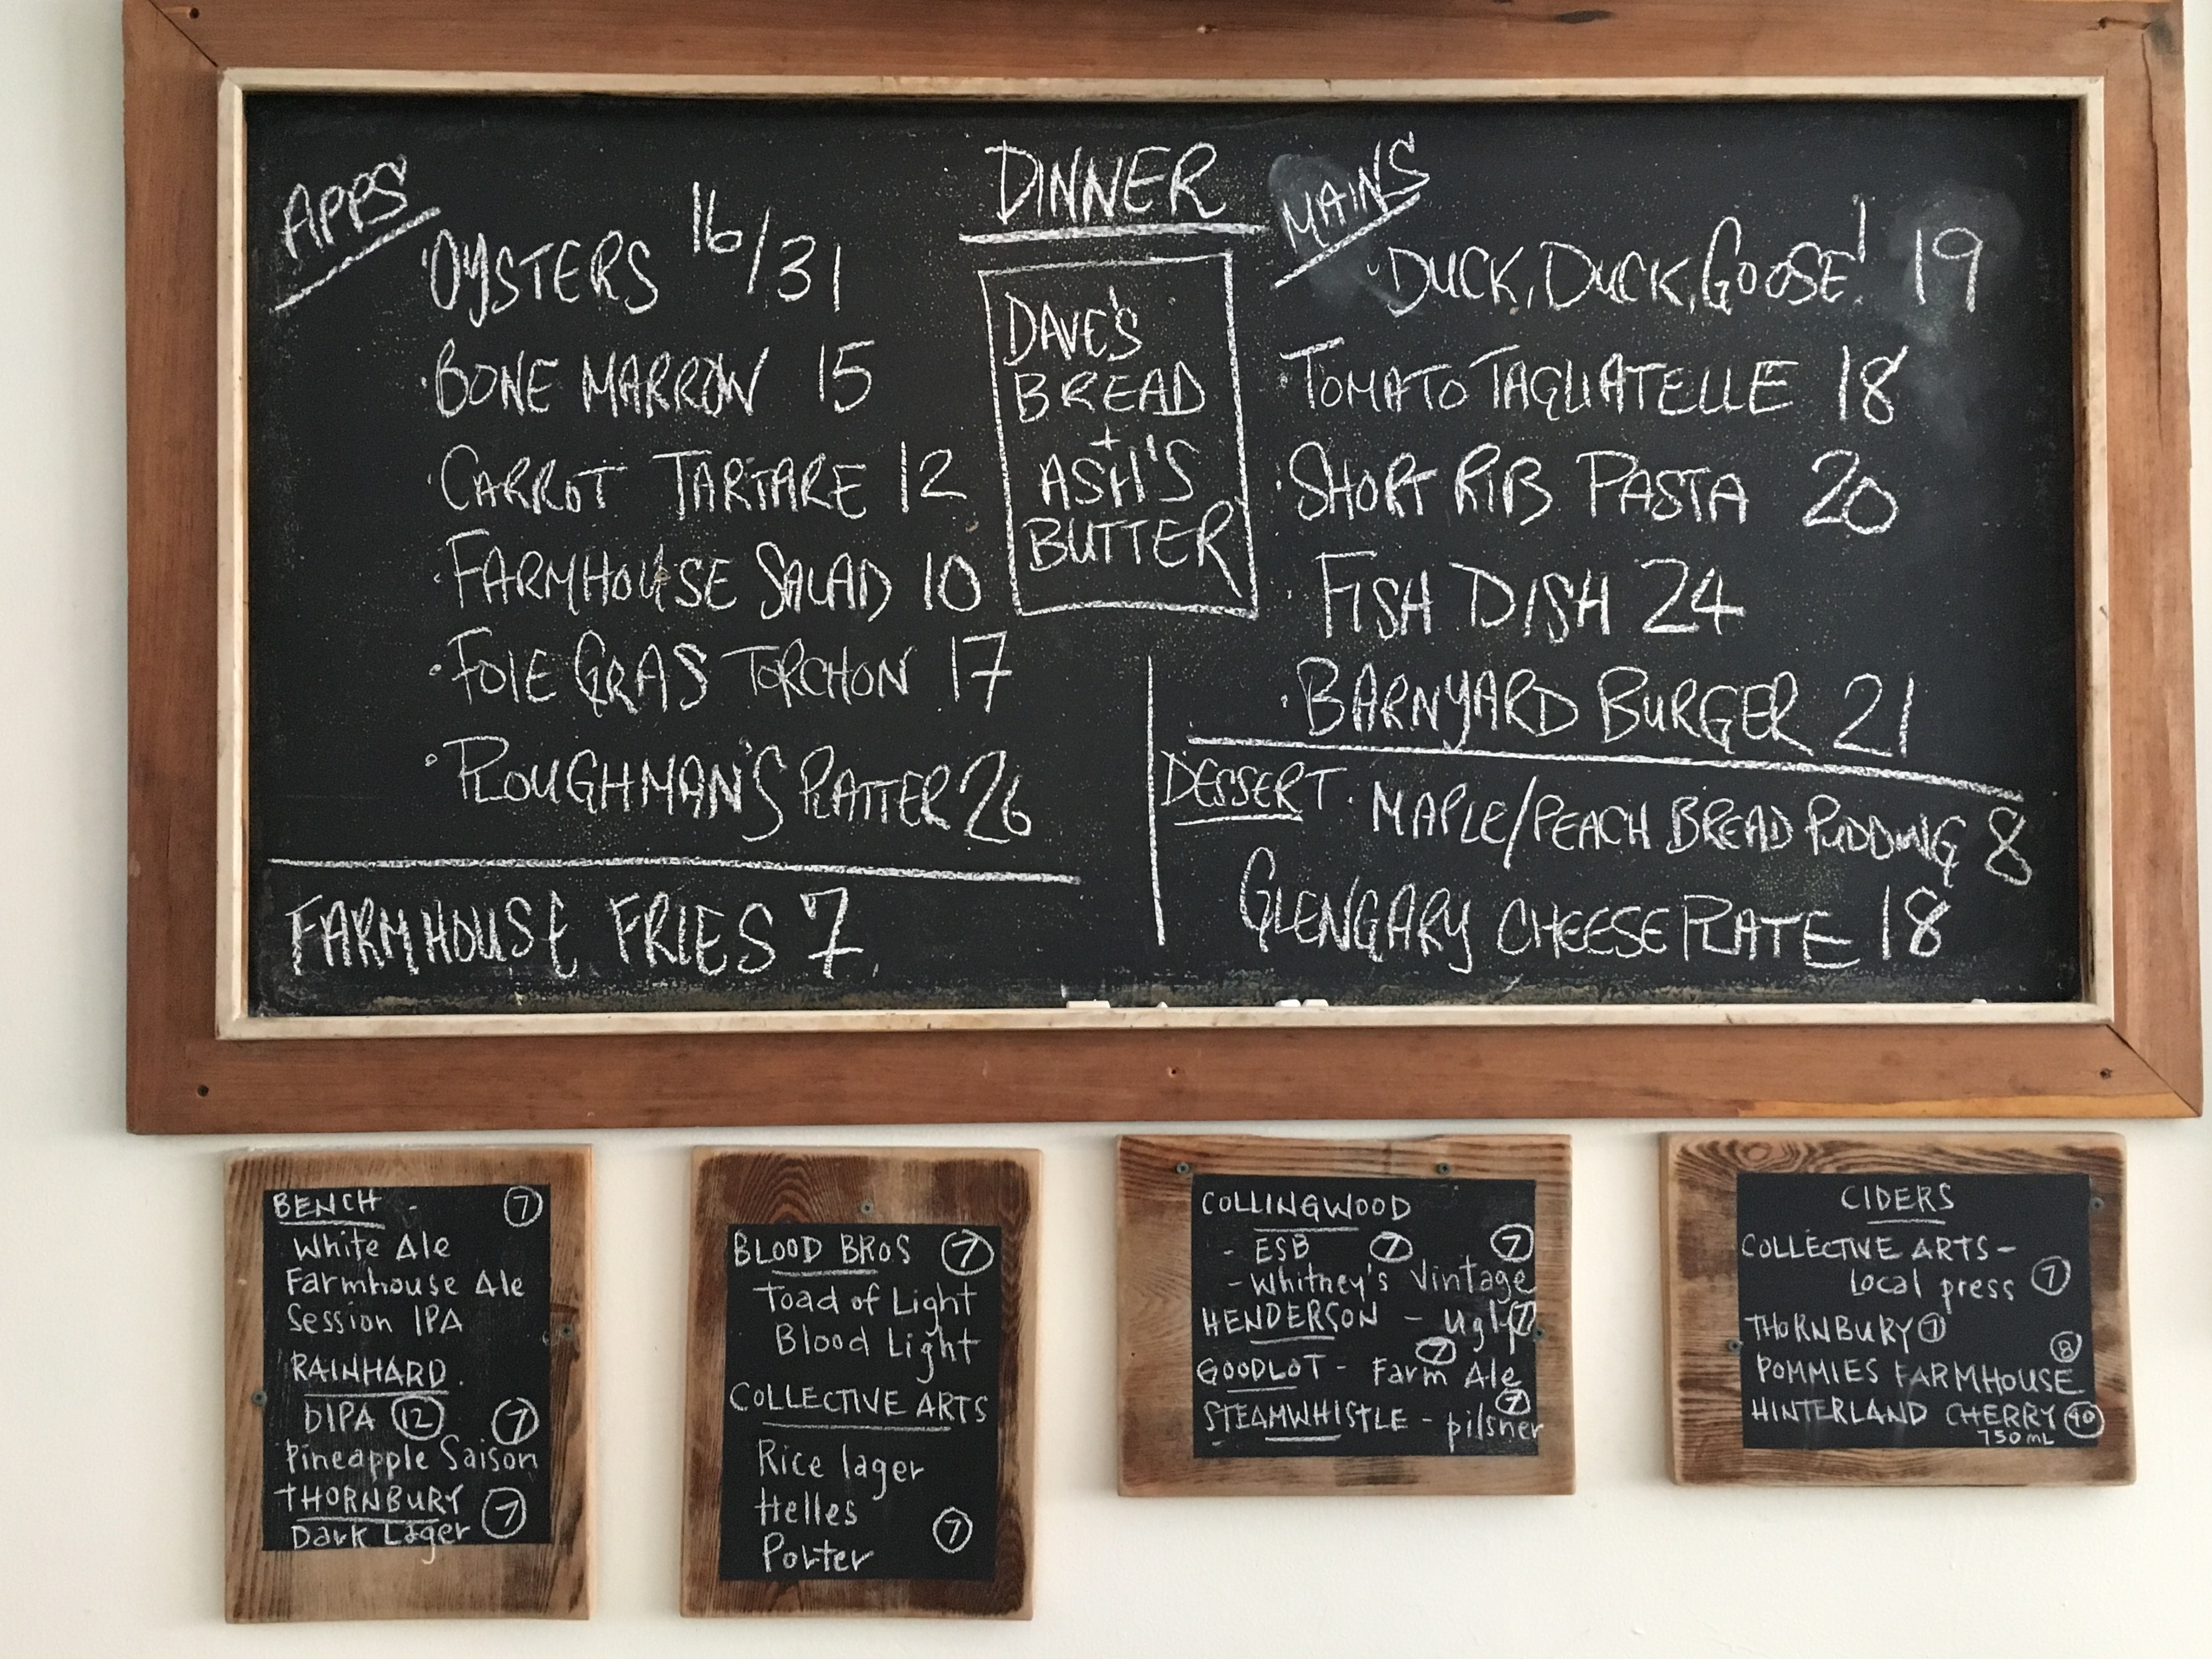 DINNER
APPS
·OYSTERS 16/31
·BONE MARROW 15
·CARROT TARTARE 12
·FARMHOUSE SALAD 10
·FOIE GRAS TORCHON 17
·PLOUGHMAN'S PLATTER 26
FARMHOUSE FRIES 7
DAVE'S
BREAD
+
ASH'S
BUTTER
MAINS
·DUCK, DUCK, GOOSE! 19
·TOMATO TAGLIATELLE 18
·SHORT RIB PASTA 20
FISH DISH 24
·BARNYARD BURGER 21
DESSERT· MAPLE/PEACH BREAD PUDDING 8
GLENGARY CHEESE PLATE 18
BENCH - 7
White Ale
Farmhouse Ale
Session IPA
RAINHARD.
DIPA 12 7
Pineapple Saison
THORNBURY 7
Dark Lager
BLOOD BROS 7
Toad of Light
Blood Light
COLLECTIVE ARTS
Rice lager
Helles
Porter 7
COLLINGWOOD
- ESB 7 7
- Whitney's Vintage
HENDERSON - ugly 7
GOODLOT - Farm Ale 7
STEAMWHISTLE - pilsner 7
CIDERS
COLLECTIVE ARTS -
Local press 7
THORNBURY 7
POMMIES FARMHOUSE 8
HINTERLAND CHERRY 40
750mL